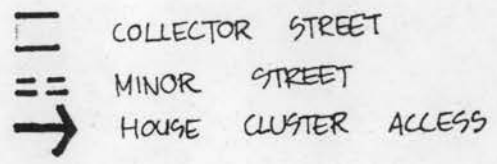 COLLECTOR STREET
MINOR STREET
HOUSE CLUSTER ACCESS